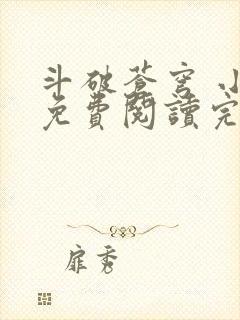 斗破苍穹 小
免費閱讀完
扉秀